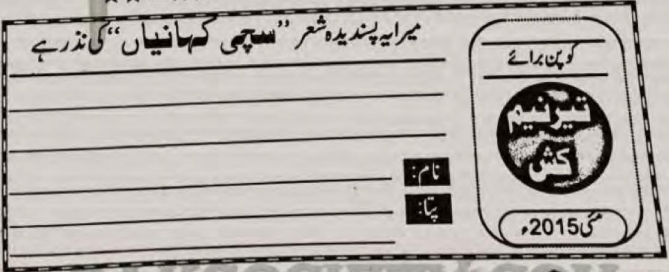 میرا یہ پسندیدہ شعر ”سچی کہانیاں“ کی نذر ہے
نام:
پتا:
کوپن برائے
تیر نیم
کش
مئی 2015ء